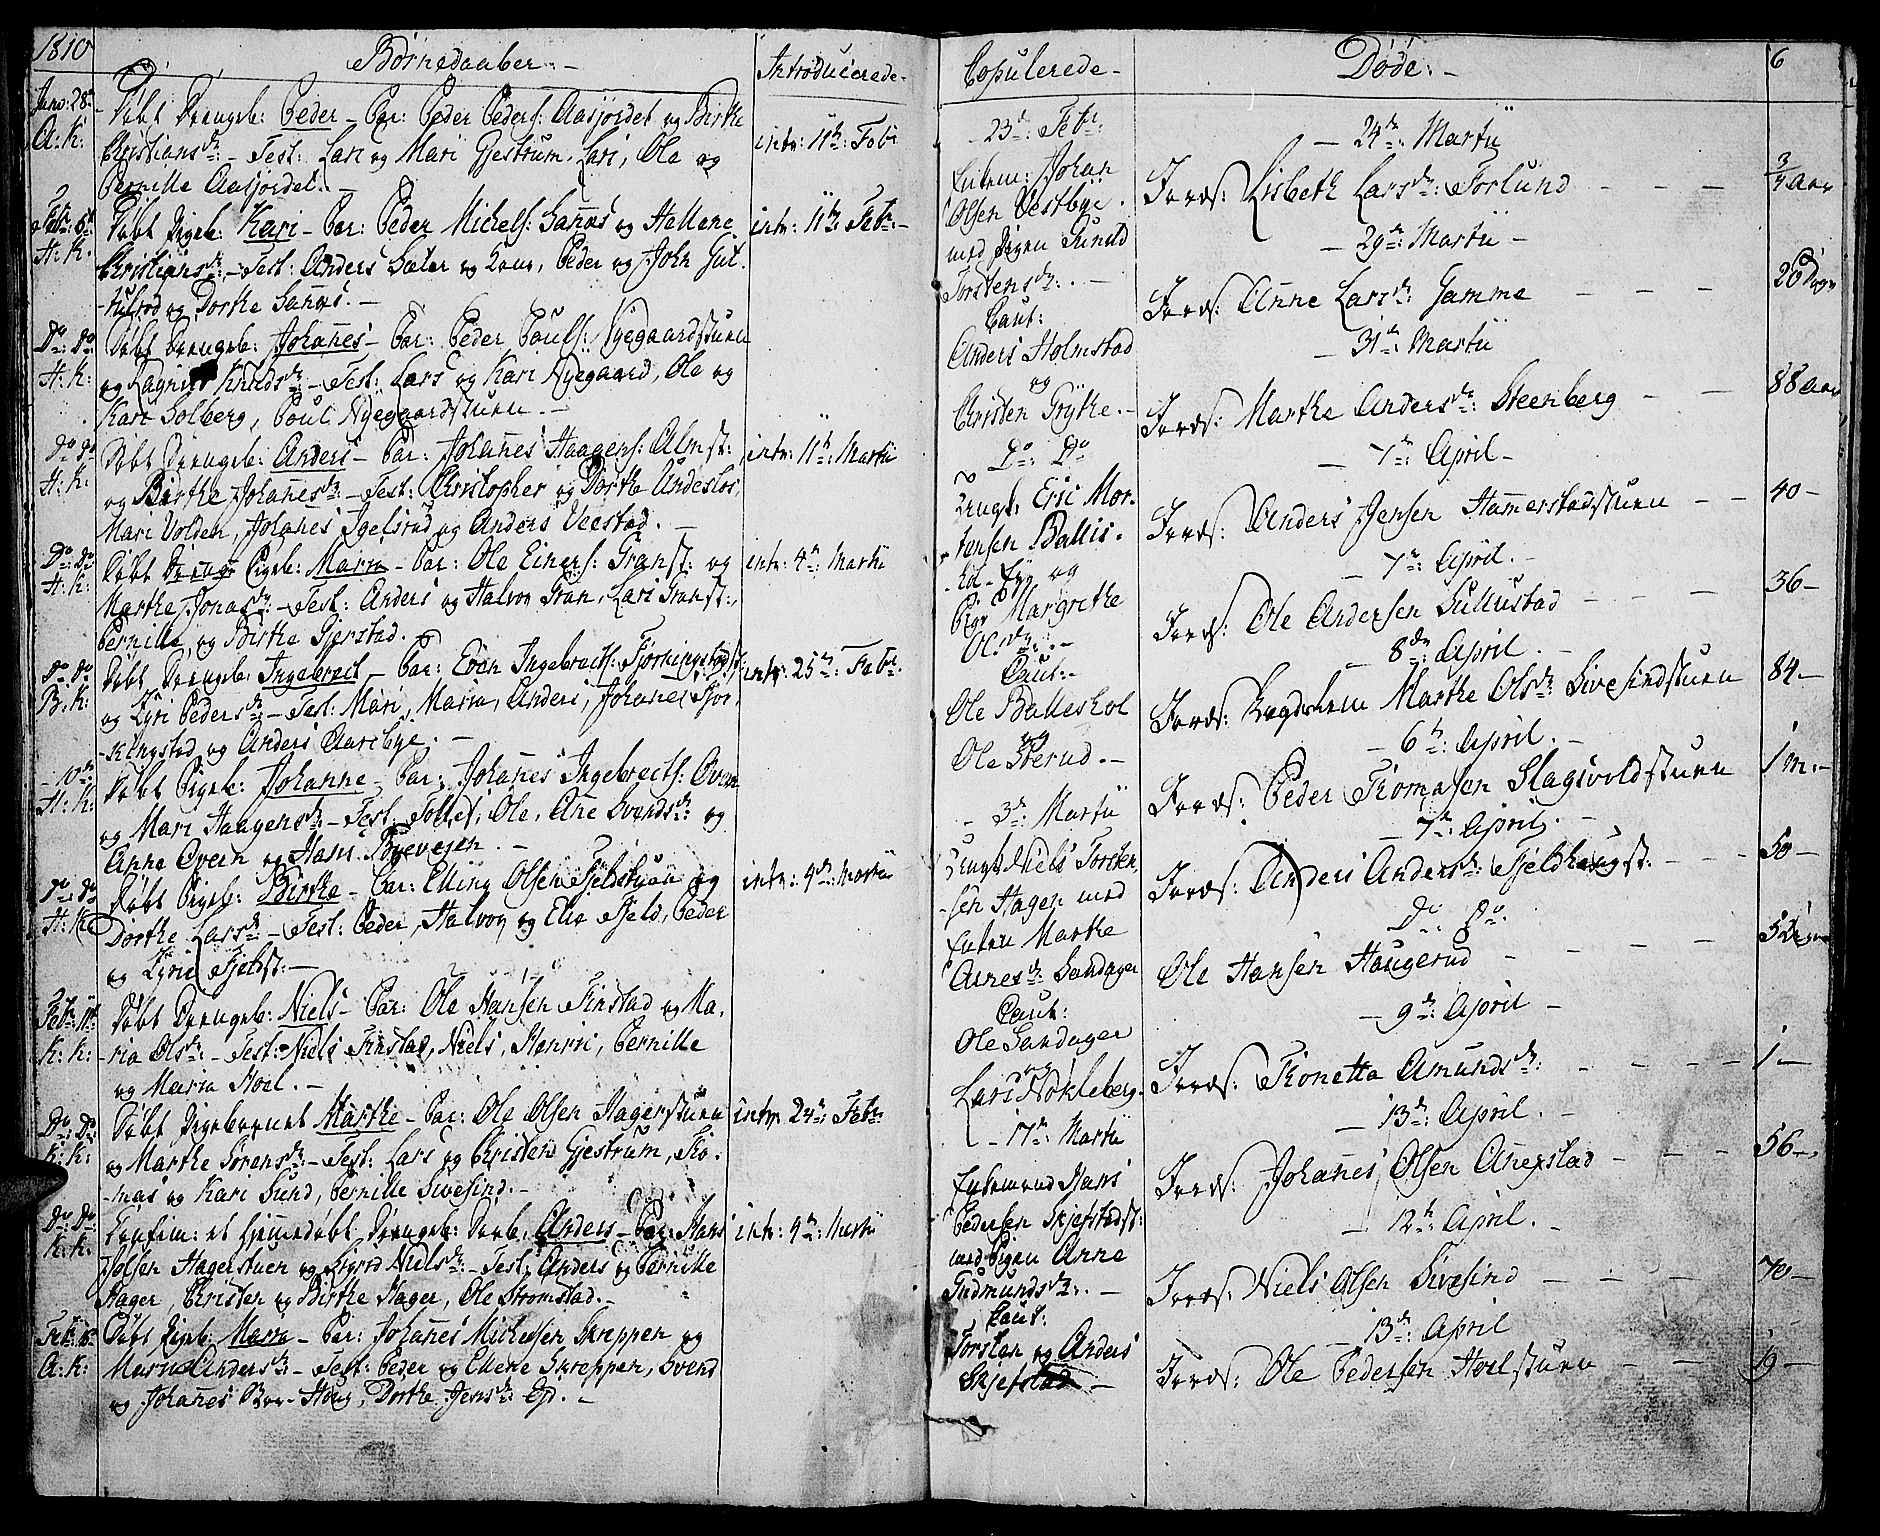 1810
Børnedaaber. -
Introducerede -
Janu: 28de
A: K:
Døbt Drengeb: Peder - Par: Peder Peders: Aasjordet og Birthe
Christiansdr: - Test: Lars og Mari Gjestrum, Lars, Ole og
Pernille Aasjordet. -
intr: 11te: Febr
Febr: 6te
H: K:
Døbt Pigeb: Kari - Par: Peder Michels: Sannæs og Hellene
Christiansdr: - Test: Anders Sæter og Kone, Peder og John Gut-
-tulsrod og Dorthe Sannæs. -
intr: 11te: Febr: -
Do: Do
H: K:
Døbt Drengeb: Johannes - Par: Peder Pouls: Nyegaardstuen
og Ragnild Knudsdr: - Test: Lars og Kari Nyegaard, Ole og
Kari Solberg, Poul Nyegaardstuen. -
Do Do
H: K:
Døbt Drengeb: Anders - Par: Johannes Haagens: Almst:
og Birthe Johannesdr: - Test: Christopher og Dorthe Undeslos,
Mari Volden, Johanes Igelsrud og Anders Veestad. -
intr: 11te: Martii
Do: Do
H: K:
Døbt Drenge Pigeb: Maria - Par: Ole Einers: Granst: og
Marthe Jonasdr: - Test: Anders og Halvor Gran, Lars Granst:,
Pernille og Birthe Gjerstad.
intr: 4de: Martii
Do: Do
B: K:
Døbt Drengeb: Ingebrect - Par: Even Ingebrects: Fjørkingstadst:
og Kyri Pedersdr: - Test: Mari, Maria, Anders, Johanes Fjør-
-kingstad og Anders Aarebye. -
intr: 25de: Febr.
- 10de:
H: K:
Døbt Pigeb: Johanne - Par: Johanes Ingebrects: Overn
og Mari Haagensdr: - Test: Tollef, Ole, Ane Svendsdr: og
Anne Overn og Hans Byevejen. -
Do: Do
H: K:
Døbt Pigeb: Birthe - Par: Elling Olsen Fjeldstuen og
Dorthe Larsdr: - Test: Peder, Halvor og Elie Fjeld, Peder
og Kyrie Fjeldst: -
intr: 4de: Martii
Febr: 11te
K: K:
Døbt Drengeb: Niels - Par: Ole Hansen Finstad og Ma-
-ria Olsdr: - Test: Niels Finstad, Niels, Henric, Pernille
og Maria Hoel. -
Do: Do:
K: K:
Døbt Pigebarnet Marthe - Par: Ole Olsen Hagerstuen
og Marthe Sørensdr: - Test: Lars og Christen Gjestrum, Tho-
-mas og Kari Sund, Pernille Sivesind. -
intr: 24de: Febr
Do: Do:
K: K:
Confirm: et hjemmedøbt Drengeb: Anders - Par: Hans
Jolsen Hagerstuen og Sigrid Nielsdr: - Test: Anders og Pernille
Hager, Christen og Birthe Hager, Ole Strømstad. -
intr: 4de: Martii
Febr: 18
A: K:
Døbt Pigeb: Maria - Par: Johannes Michelsen Skreppen og
Maria Andersdr: - Test: Peder og Ellene Skreppen, Svend
og Johannes Haug, Dorthe Jensdr: -
Copulerede -
- 23de: Febr:
Enkem: Johan
Olsen Vestbye
med Pigen Gunild
Torstensdr: . -
Caut:
Anders Holmstad
og
Christen Grythe. -
Do: Do
Ungk: Eric Mor-
-tensen Ballis-
og
Pige Margrethe
Olsdr: . -
Caut: -
Ole Balleshol
og
Ole Sterud. -
- 3de: Martii
Ungk: Niels Torsten-
-sen Hagen med
Enken Marthe
Arnesdr: Sandager
Caut:
Ole Sandager
og
Lars Nokleberg.
- 17de: Martii
Enkemand Hans
Pedersen Skjefstadst:
med Pigen Anne
Gudmundsdr: . -
Caut:
Torsten og Anders
Skjefstad -
Døde. -
6
- 24de: Martii
Jords: Lisbeth Larsdr: Forlund - - - 3/4 Aar
- 29de: Martii -
Jords: Anne Larsdr: Gamme - - - 26 Dage
- 31te: Martii
Jords: Marthe Andersdr: Steenberg - - 88 Aar
- 7de: April -
Jords: Anders Jensen Hammerstadstuen - - 40 -
- 7de: April. -
Jords: Ole Andersen Sullustad - - - 36 -
- 8de: April. -
Jords: Lægdslem Marthe Olsdr: Sivesindstuen 84 -
- 6te: April. -
Jords: Peder Thomasen Slagsvoldstuen 1 m: -
- 7de: April. -
Jords: Anders Andersdr: Fjeldhaugst: - - - 50 -
Do: Do.
Ole Hansen Haugerud - - - - 5 Dage
- 9de: April -
Jords: Thonetta Amundsdr: - - - - 1 -
- 13de: April. -
Jords: Johannes Olsen Anexstad - - - 56 -
- 12te: April. -
Jords: Niels Olsen Sivesind - - - 70 -
- 13de: April
Jords: Ole Pedersen Hoelstuen - - 19 -